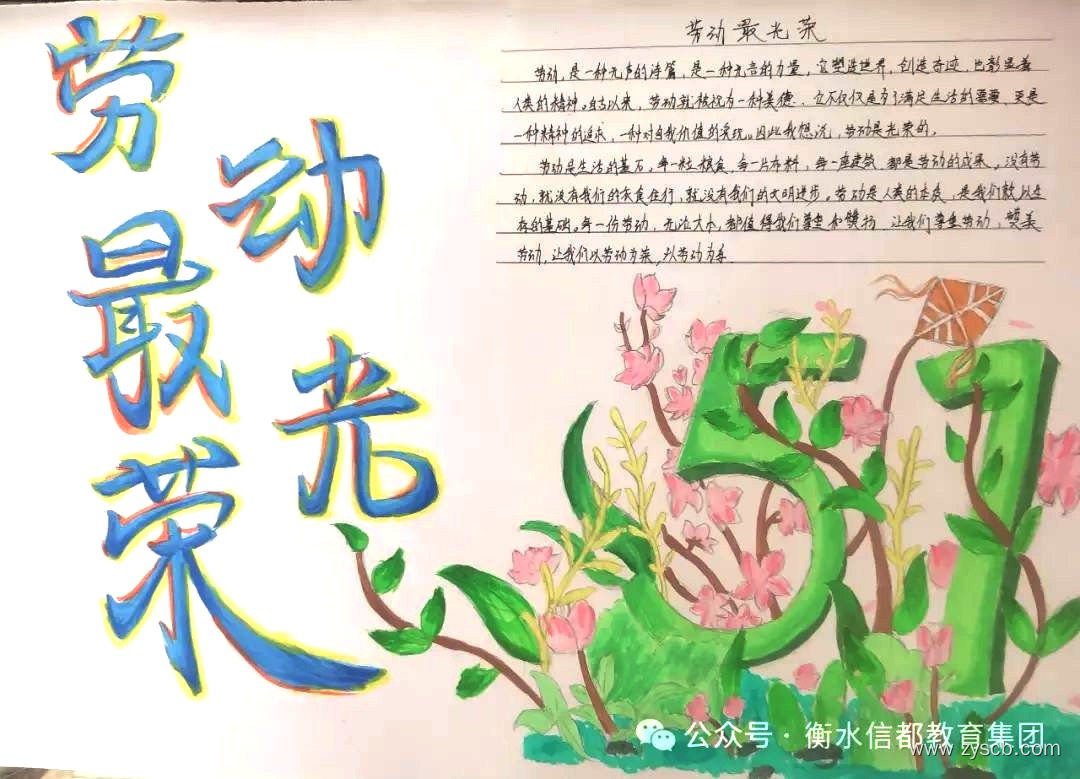 劳动最光荣
劳动最光荣
劳动,是一种无声的诗篇,是一种无音的力量,它塑造世界,创造奇迹,也彰显着
人类的精神。自古以来,劳动就被视为一种美德,它不仅仅是为了满足生活的需要,更是
一种精神的追求,一种对自我价值的实现。因此我想说,劳动是光荣的。
劳动是生活的基石。每一粒粮食,每一片布料,每一座建筑,都是劳动的成果,没有劳
动,就没有我们的衣食住行,就没有我们的文明进步。劳动是人类的本质,是我们赖以生
存的基础。每一份劳动,无论大小,都值得我们尊重和赞扬,让我们尊重劳动,赞美
劳动,让我们以劳动为荣,以劳动为乐
51
公众号·衡水信都教育集团
www.zyscb.com